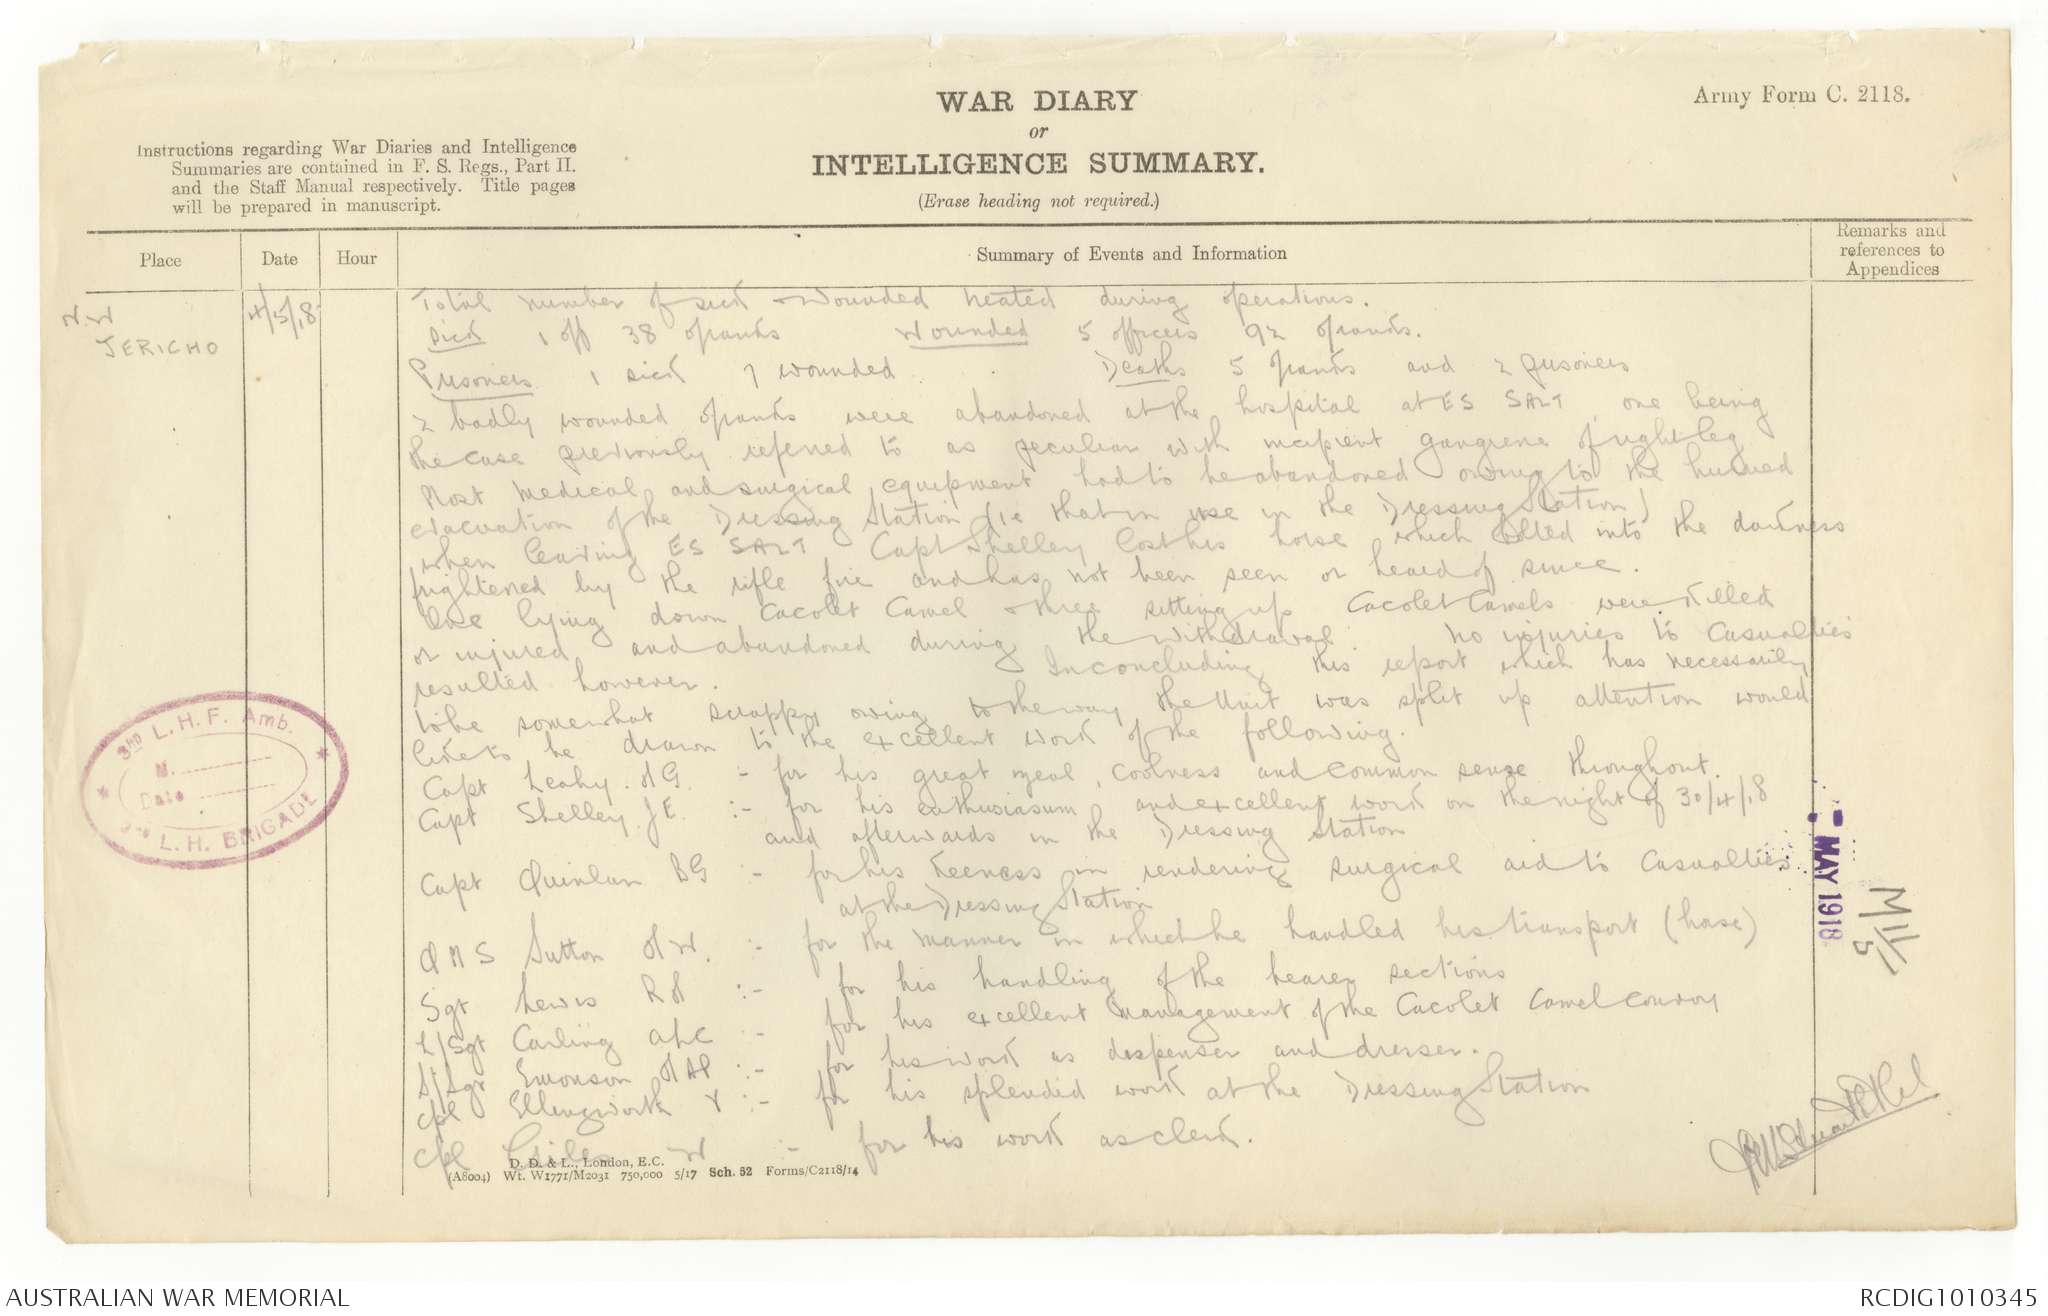 WAR DIARY
or
INTELLIGENCE SUMMARY.
(Erase heading not required.)
Army Form C. 2118.
Instructions regarding War Diaries and Intelligence
Summaries are contained in F. S. Regs., Part II.
and the Staff Manual respectively. Title pages
will be prepared in manuscript.
Place Date Hour Summary of Events and Information Remarks and references to Appendices
N.W
JERICHO
4/5/18
Total number of sick & Wounded treated during operations.
Sick 1 off 38 o/ranks Wounded 5 officers 92 o/ranks.
Prisoners 1 sick 7 wounded. Deaths 5 o/ranks and 2 prisoners
2 badly wounded o/ranks were abandoned at the hospital at ES SALT, one being
the case previously referred to as peculiar with incipient gangrene of right leg
Most medical and surgical equipment had to be abandoned owing to the hurried
evacuation of the Dressing Station (ie that in use in the Dressing Station)
when leaving ES SALT Capt Shelley lost his horse which bolted into the darkness
frightened by the rifle fire and has not been seen or heard of since.
One lying down Cacolet Camel & three sitting up Cacolet Camels were killed
or injured and abandoned during the withdrawal. No injuries to casualties
resulted however. In concluding this report which has necessarily
to be somewhat scrappy owing to the way the Unit was split up attention would
like to be drawn to the excellent work of the following.
Capt Leahy :- for his great zeal, coolness and common sense throughout.
Capt Shelley J E. :- for his enthusiasm and excellent work on the night of 30/4/18
and afterwards in the Dressing Station
Capt Quinlan B G :- for his keeness in rendering surgical aid to casualties
at the Dressing Station
Q M S Sutton W. :- for the manner in which he handled his transport (horse)
Sgt Lewis R :- for his handling of the bearer sections
L/Sgt Carling :- for his excellent management of the Cacolet Camel convoy
S/Sgt Emonson :- for his work as dispenser and dresser.
Cpl Ellingworth :- for his splendid work at the Dressing Station
Cpl Giles W :- for his work as clerk.
3RD L. H. F. Amb.
N.
Date
3RD L. H. BRIGADE
MAY 1918
D. D. & L., London, E.C.
(A8004) Wt. W1771/M2031 750,000 5/17 Sch. 52 Forms/C2118/14
AUSTRALIAN WAR MEMORIAL
RCDIG1010345